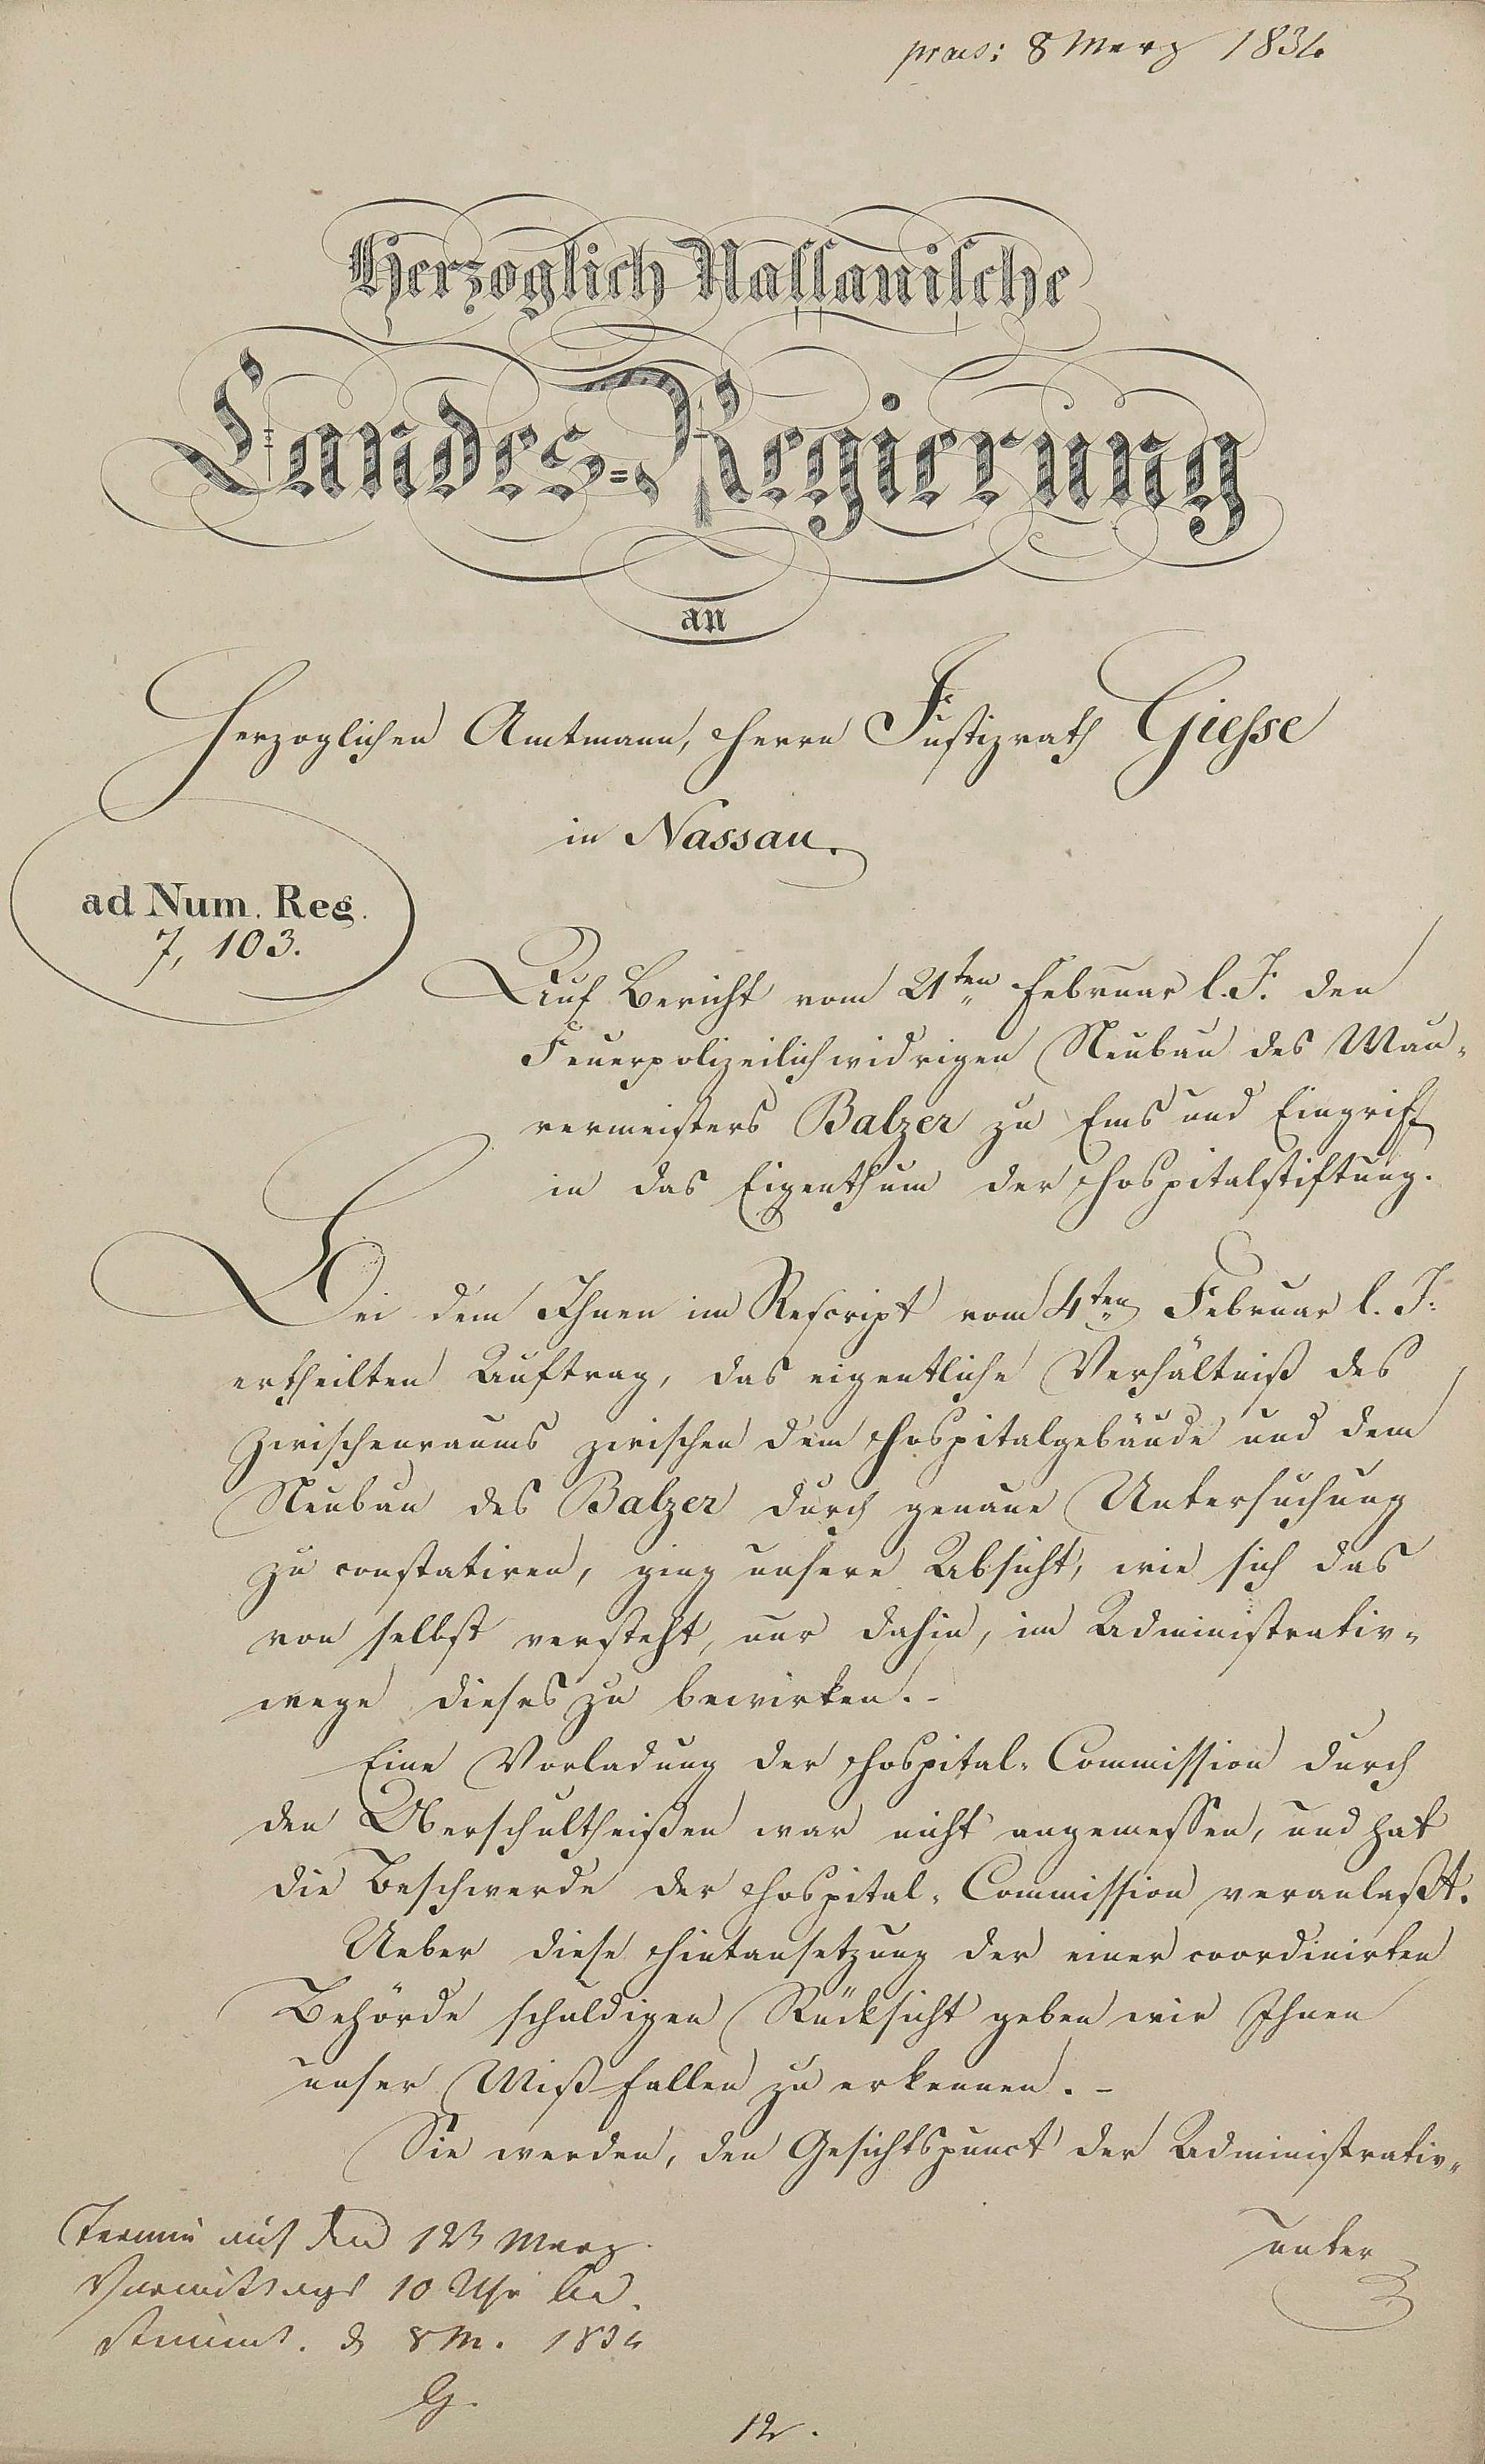 praes: 8 Merz 1834
Herzoglich Nassauische
Landes-Regierung
an
Herzoglichen Amtmann, Herrn Justizrath Giesse
in Nassau.
ad Num. Reg.
7, 103.
Auf Bericht vom 21ten Februar l. J. den
Feuerpolizeilichwidrigen Neubau des Mau-
rermeisters Balzer zu Ems und Eingriff
in das Eigenthum der Hospitalstiftung.
Bei dem Ihnen im Rescript vom 4ten Februar l. J.
ertheilten Auftrag, das eigentliche Verhältniß des
Zwischenraums zwischen dem Hospitalgebäude und dem
Neubau des Balzer durch genaue Untersuchung
zu constatiren, ging unsere Absicht, wie sich das
von selbst versteht, nur dahin, im Administrativ-
wege dieses zu bewirken.-
Eine Vorladung der Hospital-Commission durch
den Oberschultheißen war nicht angemessen, und hat
die Beschwerde der Hospital-Commission veranlaßt.
Ueber diese Hintansetzung der einer coordinirten
Behörde schuldigen Rücksicht geben wir Ihnen
unser Mißfallen zu erkennen.-
Sie werden, den Gesichtspunct der Administrativ-
unter
Termin auf den 123 Merz
Vormittags 10 Uhr be-
stimmt. d 8 M. 1834
G.
12.